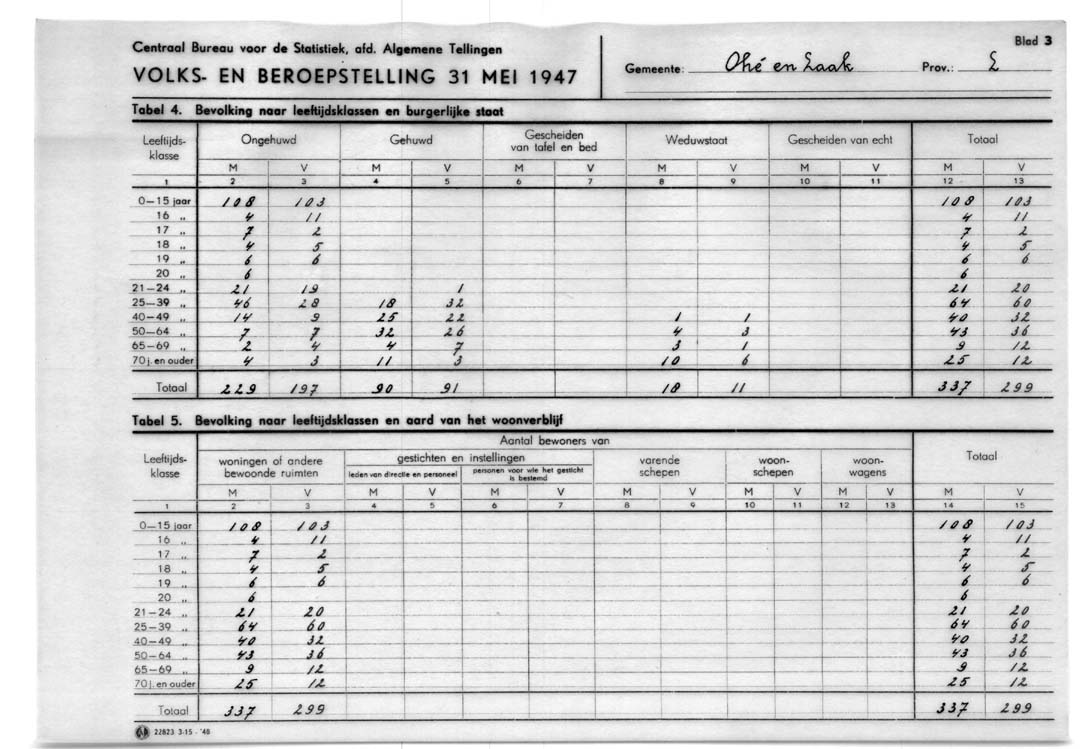 Blad 3
Centraal Bureau voor de Statistiek, afd. Algemene Tellingen
VOLKS- EN BEROEPSTELLING 31 MEI 1947
Gemeente: Ohé en Laak Prov.: L
Tabel 4. Bevolking naar leeftijdsklassen en burgerlijke staat
Leeftijds-klasse Ongehuwd Gehuwd Gescheiden van tafel en bed Weduwstaat Gescheiden van echt Totaal
M V M V M V M V M V M V
1 2 3 4 5 6 7 8 9 10 11 12 13
0—15 jaar 108 103 108 103
16 „ 4 11 4 11
17 „ 7 2 7 2
18 „ 4 5 4 5
19 „ 6 6 6 6
20 „ 6 6
21—24 „ 21 19 1 21 20
25—39 „ 46 28 18 32 64 60
40—49 „ 14 9 25 22 1 1 40 32
50—64 „ 7 7 32 26 4 3 43 36
65—69 „ 2 4 4 7 3 1 9 12
70 j. en ouder 4 3 11 3 10 6 25 12
Totaal 229 197 90 91 18 11 337 299
Tabel 5. Bevolking naar leeftijdsklassen en aard van het woonverblijf
Aantal bewoners van
Leeftijds-klasse woningen of andere bewoonde ruimten gestichten en instellingen varende schepen woon-schepen woon-wagens Totaal
leden van directie en personeel personen voor wie het gesticht is bestemd
M V M V M V M V M V M V M V
1 2 3 4 5 6 7 8 9 10 11 12 13 14 15
0—15 jaar 108 103 108 103
16 „ 4 11 4 11
17 „ 7 2 7 2
18 „ 4 5 4 5
19 „ 6 6 6 6
20 „ 6 6
21—24 „ 21 20 21 20
25—39 „ 64 60 64 60
40—49 „ 40 32 40 32
50—64 „ 43 36 43 36
65—69 „ 9 12 9 12
70 j. en ouder 25 12 25 12
Totaal 337 299 337 299
22823 3-15 - '48